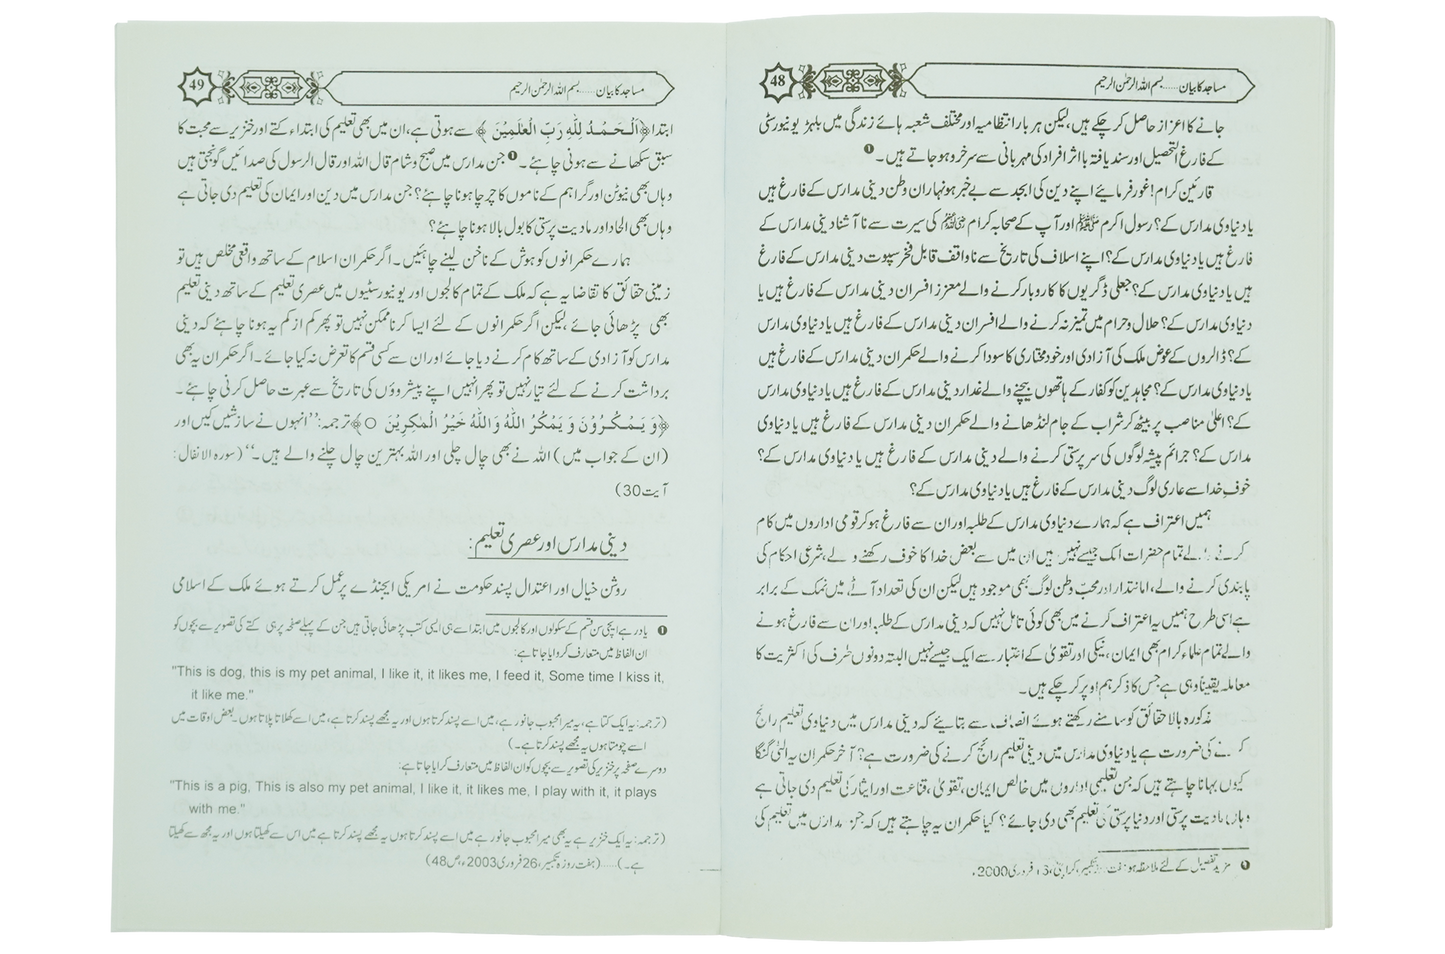 48
مساجد کا بیان ...... بسم اللہ الرحمٰن الرحیم
جانے کا اعزاز حاصل کر چکے ہیں، لیکن ہر بار انتظامیہ اور مختلف شعبہ ہائے زندگی میں یہی یونیورسٹی
کے فارغ التحصیل اور سند یافتہ با اثر افراد کی مہربانی سے سرخرو ہو جاتے ہیں۔ ❶
قارئین کرام! غور فرمائیے اپنے دین کی ابجد سے بے خبر ہونہاران وطن دینی مدارس کے فارغ ہیں
یا دنیاوی مدارس کے؟ رسول اکرم ﷺ اور آپ کے صحابہ کرام ؓ کی سیرت سے نا آشنا دینی مدارس کے
فارغ ہیں یا دنیاوی مدارس کے؟ اپنے اسلاف کی تاریخ سے ناواقف قابل فخر سپوت دینی مدارس کے فارغ
ہیں یا دنیاوی مدارس کے؟ جعلی ڈگریوں کا کاروبار کرنے والے معزز افسران دینی مدارس کے فارغ ہیں یا
دنیاوی مدارس کے؟ حلال و حرام میں تمیز نہ کرنے والے افسران دینی مدارس کے فارغ ہیں یا دنیاوی مدارس
کے؟ ڈالروں کے عوض ملک کی آزادی اور خود مختاری کا سودا کرنے والے حکمران دینی مدارس کے فارغ ہیں
یا دنیاوی مدارس کے؟ مجاہدین کو کفار کے ہاتھوں بیچنے والے غدار دینی مدارس کے فارغ ہیں یا دنیاوی مدارس
کے؟ اعلیٰ مناصب پر بیٹھ کر شراب کے جام لنڈھانے والے حکمران دینی مدارس کے فارغ ہیں یا دنیاوی
مدارس کے؟ جرائم پیشہ لوگوں کی سرپرستی کرنے والے دینی مدارس کے فارغ ہیں یا دنیاوی مدارس کے؟
خوفِ خدا سے عاری لوگ دینی مدارس کے فارغ ہیں یا دنیاوی مدارس کے؟
ہمیں اعتراف ہے کہ ہمارے دنیاوی مدارس کے طلبہ اور ان سے فارغ ہو کر قومی اداروں میں کام
کرنے والے تمام حضرات ایک جیسے نہیں ہیں ان میں سے بعض خدا کا خوف رکھنے والے، شرعی احکام کی
پابندی کرنے والے، امانتدار اور محبِ وطن لوگ بھی موجود ہیں لیکن ان کی تعداد آٹے میں نمک کے برابر
ہے اسی طرح ہمیں یہ اعتراف کرنے میں بھی کوئی تامل نہیں کہ دینی مدارس کے طلبہ اور ان سے فارغ ہونے
والے تمام علماء کرام بھی ایمان، نیکی اور تقویٰ کے اعتبار سے ایک جیسے نہیں البتہ دونوں طرف کی اکثریت کا
معاملہ یقیناً وہی ہے جس کا ذکر ہم اوپر کر چکے ہیں۔
مذکورہ بالا حقائق کو سامنے رکھتے ہوئے انصاف سے بتائیے کہ دینی مدارس میں دنیاوی تعلیم رائج
کرنے کی ضرورت ہے یا دنیاوی مدارس میں دینی تعلیم رائج کرنے کی ضرورت ہے؟ آخر حکمران یہ الٹی گنگا
کیوں بہانا چاہتے ہیں کہ جن تعلیمی اداروں میں خالص ایمان، تقویٰ، قناعت اور ایثار کی تعلیم دی جاتی ہے
وہاں مادیت پرستی اور دنیا پرستی کی تعلیم بھی دی جائے؟ کیا حکمران یہ چاہتے ہیں کہ جن مدارس میں تعلیم کی
❶ مزید تفصیل کے لئے ملاحظہ ہو ہفت روزہ تکبیر، کراچی، فروری 2000ء
49
مساجد کا بیان ...... بسم اللہ الرحمٰن الرحیم
ابتدا ﴿اَلْحَمْدُ لِلّٰهِ رَبِّ الْعٰلَمِيْنَ ﴾ سے ہوتی ہے، ان میں بھی تعلیم کی ابتداء کتے اور خنزیر سے محبت کا
سبق سکھانے سے ہونی چاہئے۔ ❶ جن مدارس میں صبح و شام قال اللہ اور قال الرسول کی صدائیں گونجتی ہیں
وہاں بھی نیوٹن اور گراہم کے ناموں کا چرچا ہونا چاہئے؟ جن مدارس میں دین اور ایمان کی تعلیم دی جاتی ہے
وہاں بھی الحاد اور مادیت پرستی کا بول بالا ہونا چاہئے؟
ہمارے حکمرانوں کو ہوش کے ناخن لینے چاہئیں۔ اگر حکمران اسلام کے ساتھ واقعی مخلص ہیں تو
زمینی حقائق کا تقاضا یہ ہے کہ ملک کے تمام کالجوں اور یونیورسٹیوں میں عصری تعلیم کے ساتھ دینی تعلیم
بھی پڑھائی جائے، لیکن اگر حکمرانوں کے لئے ایسا کرنا ممکن نہیں تو پھر کم از کم یہ ہونا چاہئے کہ دینی
مدارس کو آزادی کے ساتھ کام کرنے دیا جائے اور ان سے کسی قسم کا تعرض نہ کیا جائے۔ اگر حکمران یہ بھی
برداشت کرنے کے لئے تیار نہیں تو پھر انہیں اپنے پیشروؤں کی تاریخ سے عبرت حاصل کرنی چاہئے۔
﴿وَ يَمْكُرُوْنَ وَ يَمْكُرُ اللّٰهُ وَاللّٰهُ خَيْرُ الْمٰكِرِيْنَ ○﴾ ترجمہ: ’’انہوں نے سازشیں کیں اور
(ان کے جواب میں) اللہ نے بھی چال چلی اور اللہ بہترین چال چلنے والے ہیں۔‘‘ (سورہ الانفال:
آیت 30)
دینی مدارس اور عصری تعلیم:
روشن خیال اور اعتدال پسند حکومت نے امریکی ایجنڈے پر عمل کرتے ہوئے ملک کے اسلامی
❶ یاد رہے ایچی سن قسم کے سکولوں اور کالجوں میں ابتدا سے ہی ایسی کتب پڑھائی جاتی ہیں جن کے پہلے صفحہ پر ہی کتے کی تصویر سے بچوں کو
ان الفاظ میں متعارف کروایا جاتا ہے:
"This is dog, this is my pet animal, I like it, it likes me, I feed it, Some time I kiss it,
it like me."
(ترجمہ: یہ ایک کتا ہے، یہ میرا محبوب جانور ہے، میں اسے پسند کرتا ہوں اور یہ مجھے پسند کرتا ہے، میں اسے کھلاتا پلاتا ہوں۔ بعض اوقات میں
اسے چومتا ہوں یہ مجھے پسند کرتا ہے۔)
دوسرے صفحہ پر خنزیر کی تصویر سے بچوں کو ان الفاظ میں متعارف کرایا جاتا ہے:
"This is a pig, This is also my pet animal, I like it, it likes me, I play with it, it plays
with me."
(ترجمہ: یہ ایک خنزیر ہے یہ بھی میرا محبوب جانور ہے میں اسے پسند کرتا ہوں یہ مجھے پسند کرتا ہے میں اس سے کھیلتا ہوں اور یہ مجھ سے کھیلتا
ہے۔) ...... (ہفت روزہ تکبیر، 26 فروری 2003ء، ص 48)